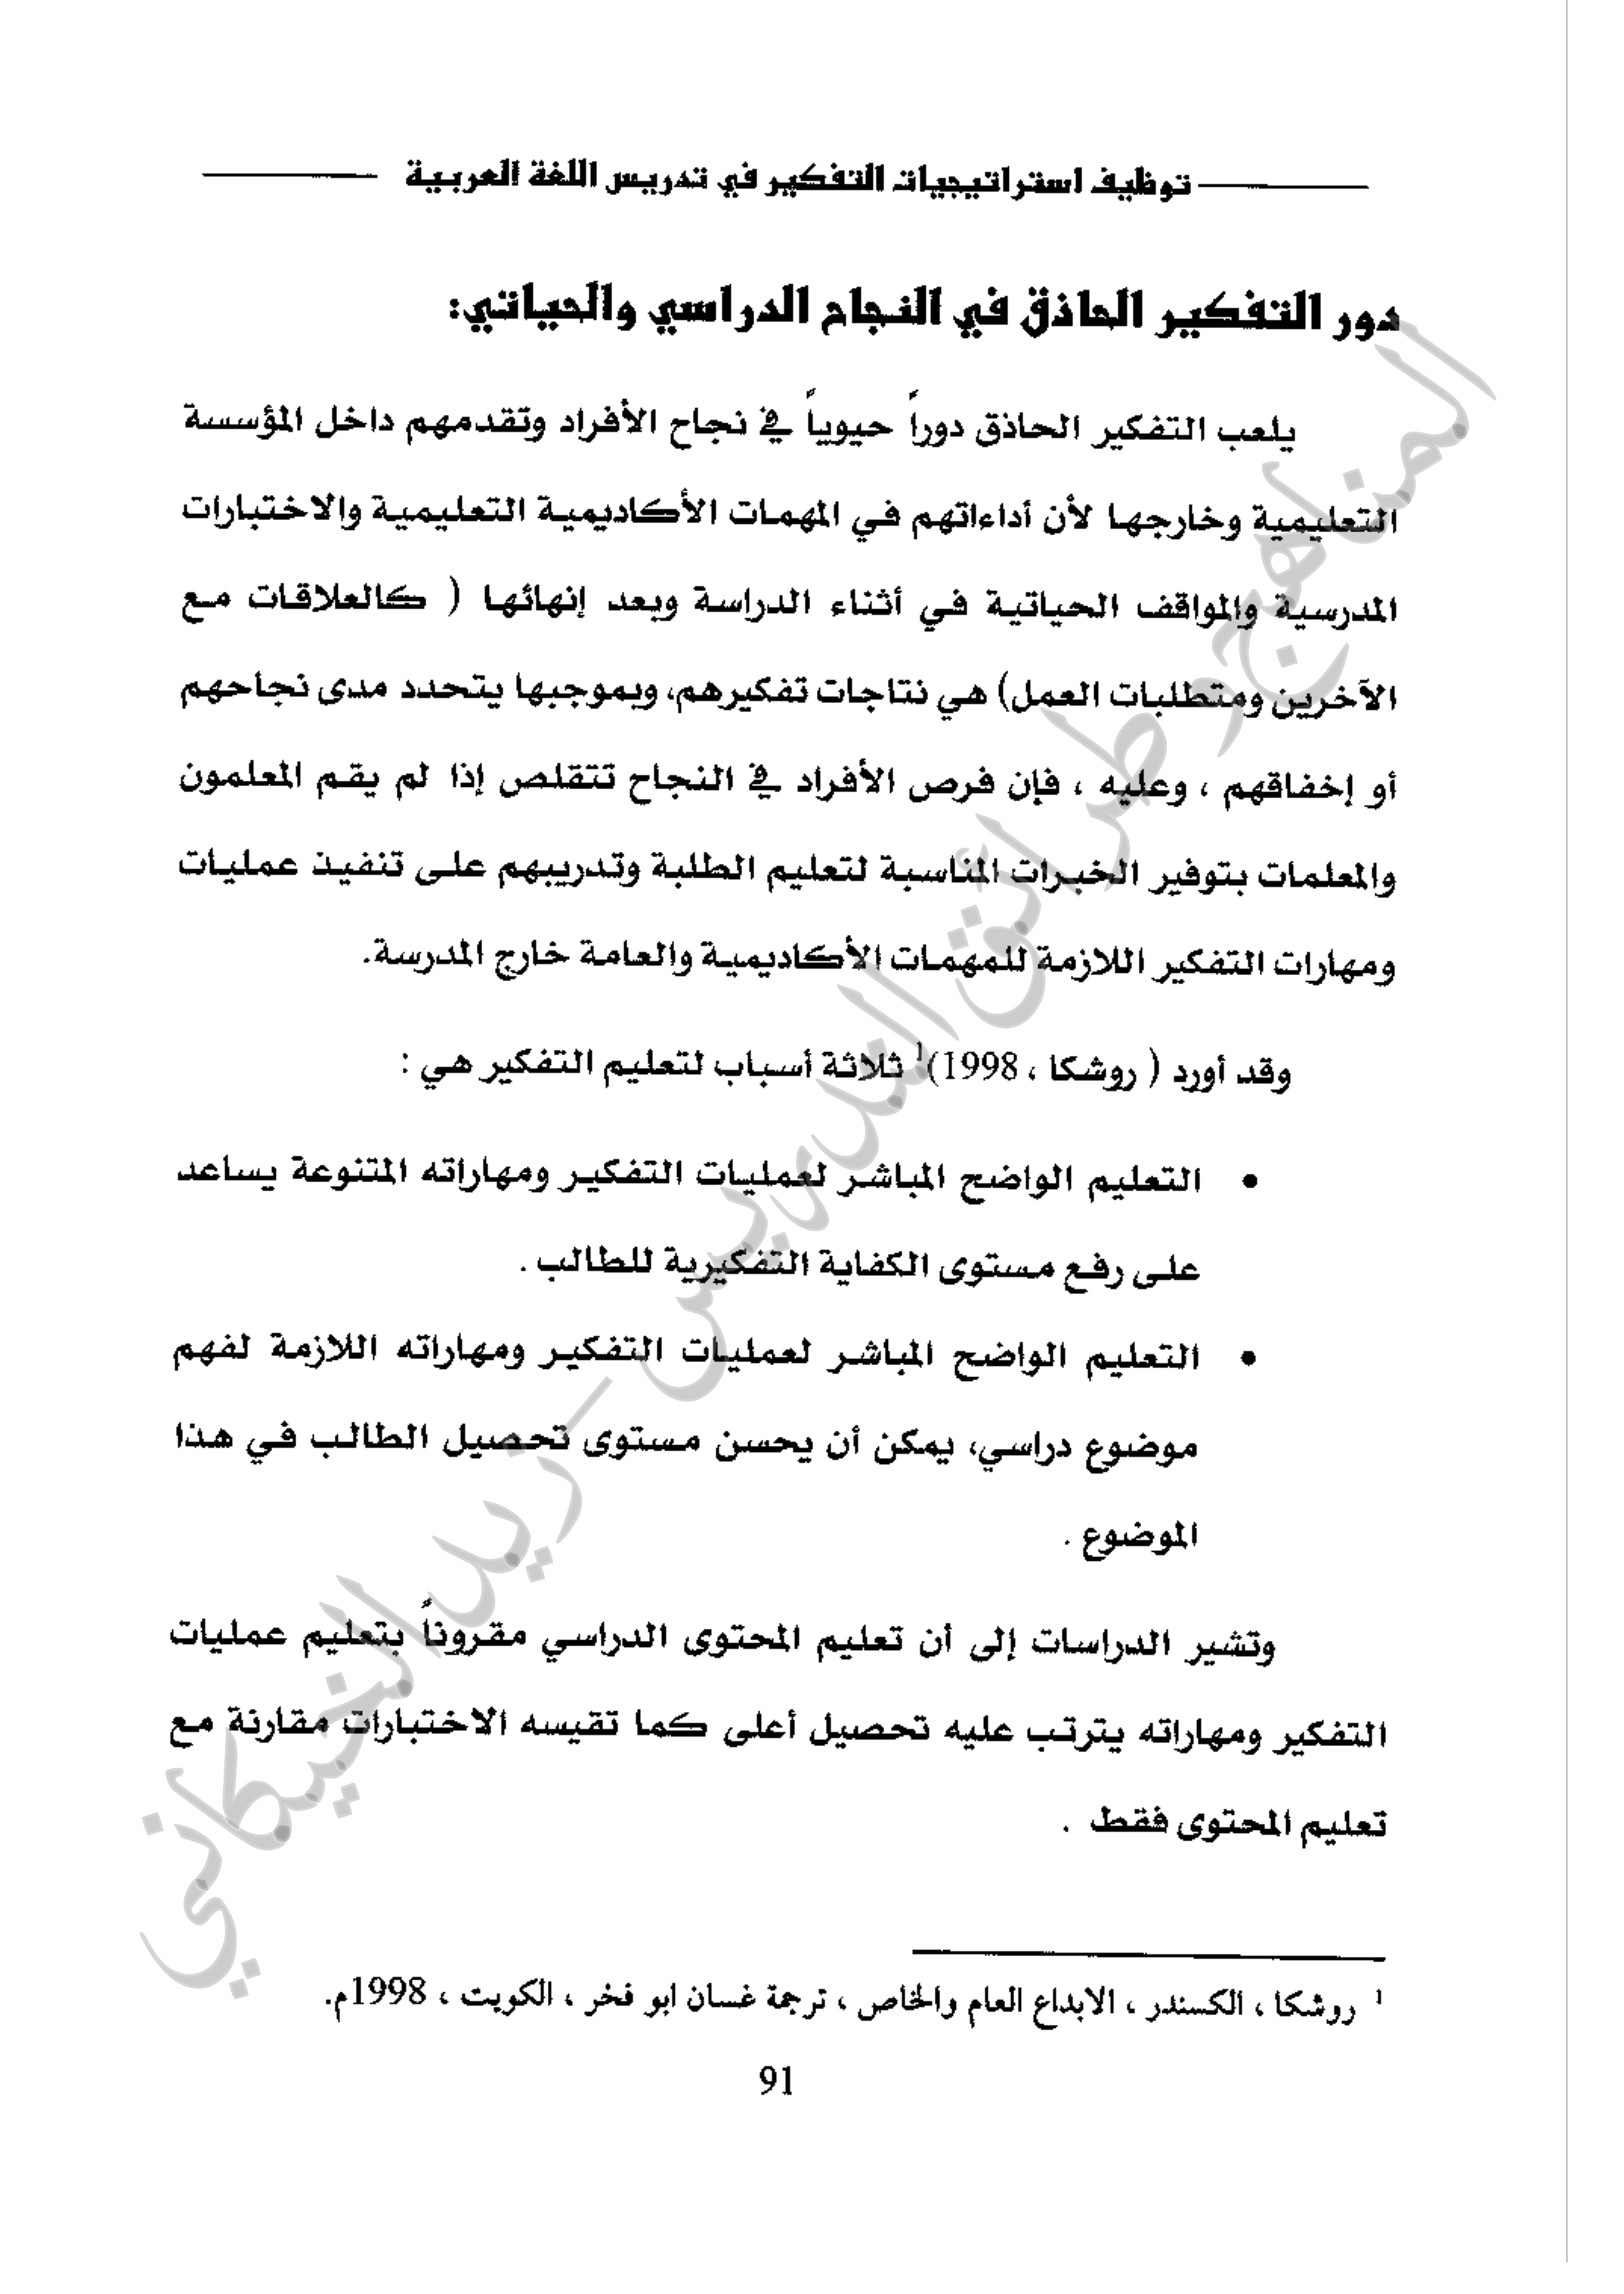 توظيف استراتيجيات التفكير في تدريس اللغة العربية
دور التفكير الحاذق في النجاح الدراسي والحياتي:
يلعب التفكير الحاذق دوراً حيوياً في نجاح الأفراد وتقدمهم داخل المؤسسة
التعليمية وخارجها لأن أداءاتهم في المهمات الأكاديمية التعليمية والاختبارات
المدرسية والمواقف الحياتية في أثناء الدراسة وبعد إنهائها ( كالعلاقات مع
الآخرين ومتطلبات العمل) هي نتاجات تفكيرهم، وبموجبها يتحدد مدى نجاحهم
أو إخفاقهم ، وعليه ، فإن فرص الأفراد في النجاح تتقلص إذا لم يقم المعلمون
والمعلمات بتوفير الخبرات المناسبة لتعليم الطلبة وتدريبهم على تنفيذ عمليات
ومهارات التفكير اللازمة للمهمات الأكاديمية والعامة خارج المدرسة.
وقد أورد ( روشكا ، 1998)1 ثلاثة أسباب لتعليم التفكير هي :
• التعليم الواضح المباشر لعمليات التفكير ومهاراته المتنوعة يساعد
على رفع مستوى الكفاية التفكيرية للطالب .
• التعليم الواضح المباشر لعمليات التفكير ومهاراته اللازمة لفهم
موضوع دراسي، يمكن أن يحسن مستوى تحصيل الطالب في هذا
الموضوع .
وتشير الدراسات إلى أن تعليم المحتوى الدراسي مقروناً بتعليم عمليات
التفكير ومهاراته يترتب عليه تحصيل أعلى كما تقيسه الاختبارات مقارنة مع
تعليم المحتوى فقط .
1 روشكا ، الكسندر ، الابداع العام والخاص ، ترجمة غسان ابو فخر ، الكويت ، 1998م.
91
المناهج وطرائق التدريس - زيد الخيكاني